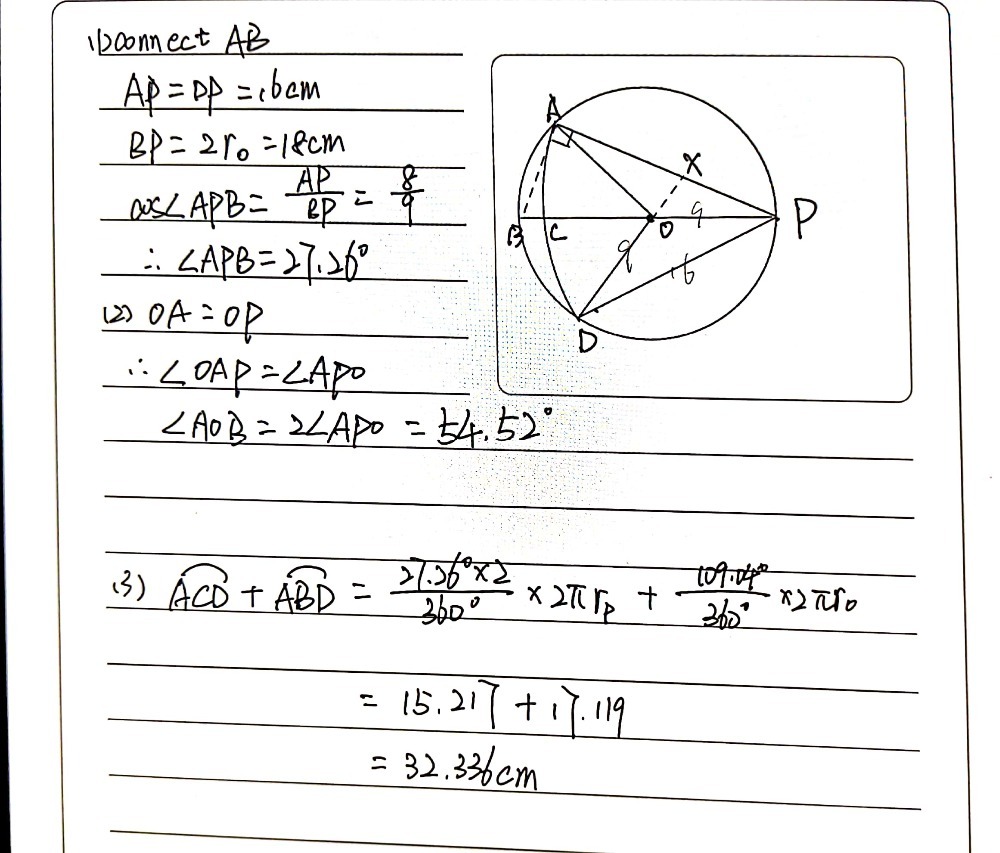 (1) Connect AB
AP = DP = 16cm
BP = 2r₀ = 18cm
cos∠APB = AP/BP = 8/9
∴ ∠APB = 27.26°
(2) OA = OP
∴ ∠OAP = ∠APO
∠AOB = 2∠APO = 54.52°
(3) ACD + ABD = 27.26°×2/360° × 2πrₚ + 109.04°/360° × 2πr₀
= 15.217 + 17.119
= 32.336cm
A
X
B
C
O
9
P
9
16
D